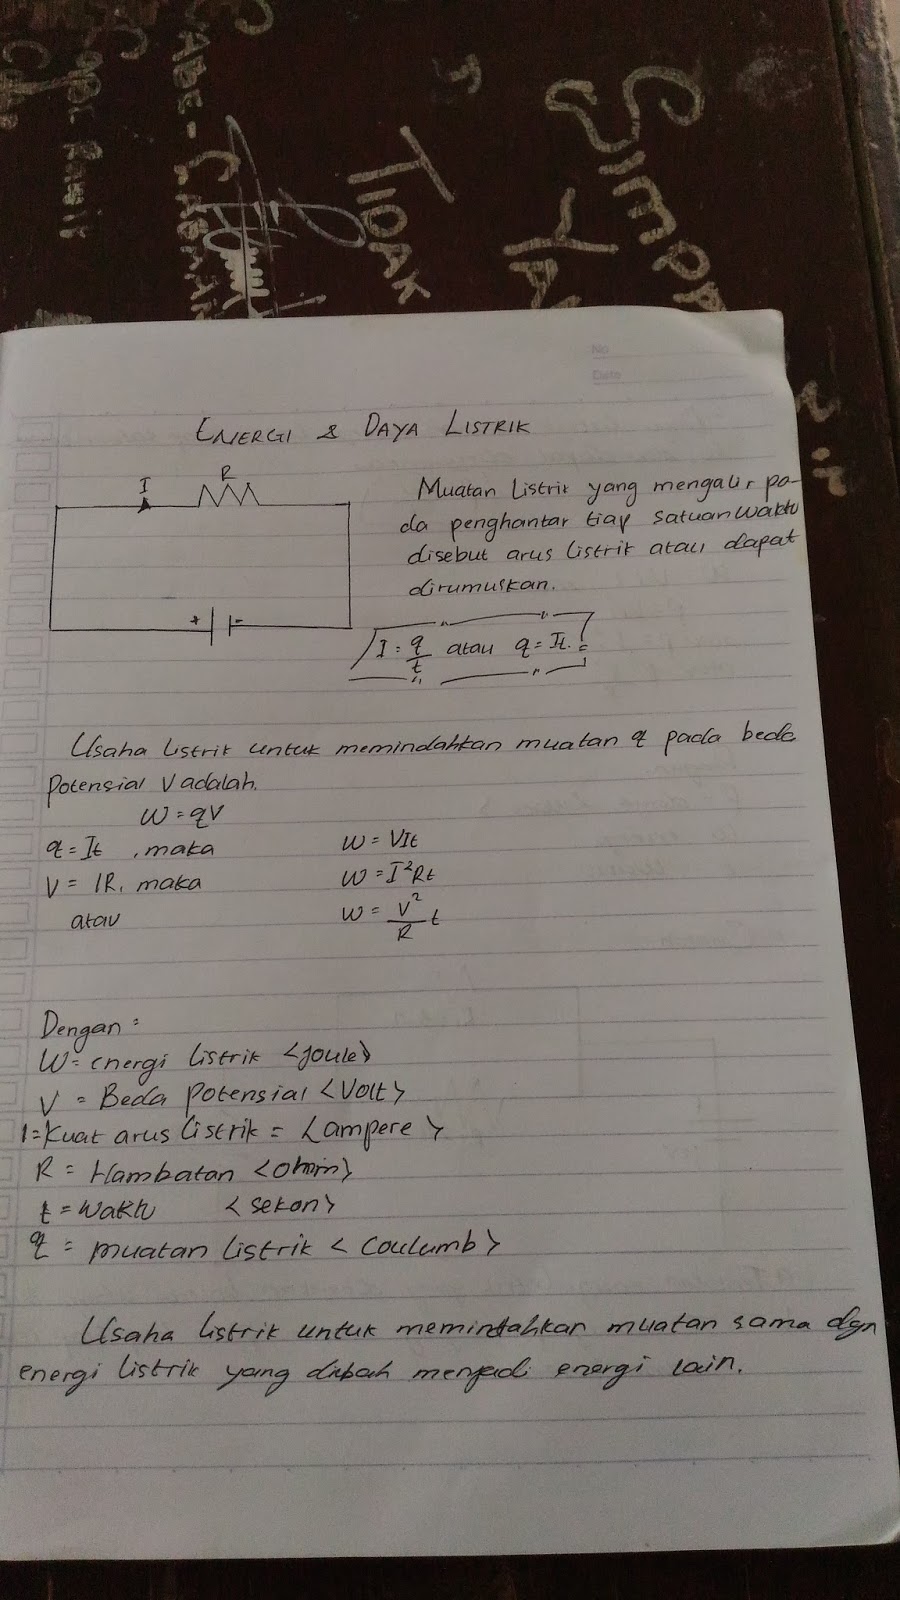 CABE-
TIDAK
No
Date
ENERGI & DAYA LISTRIK
I R
+ -
Muatan Listrik yang mengalir pa-
da penghantar tiap satuan waktu
disebut arus listrik atau dapat
dirumuskan.
I = q/t atau q = It.
Usaha listrik untuk memindahkan muatan q pada beda
potensial V adalah.
W = qV
q = It , maka W = VIt
V = IR, maka W = I²Rt
atau W = V²/R t
Dengan :
W = energi listrik <joule>
V = Beda potensial <Volt>
I = Kuat arus listrik = <ampere>
R = Hambatan <ohm>
t = waktu <sekon>
q = muatan listrik < Coulumb>
Usaha listrik untuk memindahkan muatan sama dgn
energi listrik yang diubah menjadi energi lain.